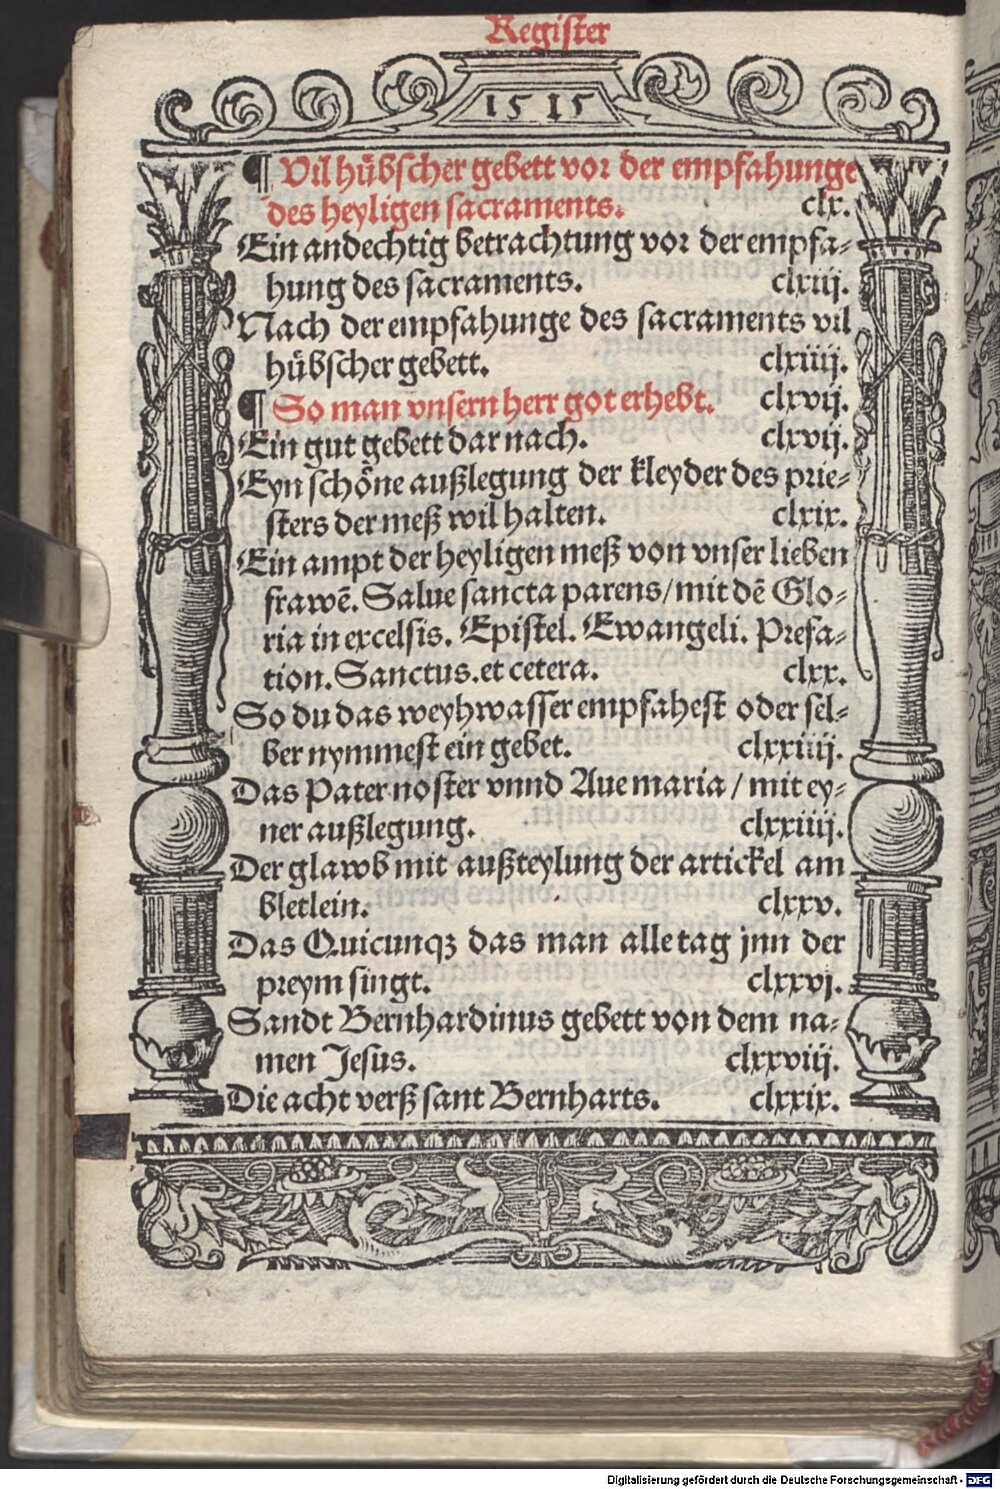 Register
1515
¶ Vil hübscher gebett vor der empfahunge
des heyligen sacraments. clx.
Ein andechtig betrachtung vor der empfa-
hung des sacraments. clxiij.
Nach der empfahunge des sacraments vil
hübscher gebett. clxiiij.
¶ So man vnsern herr got erhebt. clxvij.
Ein gut gebett dar nach. clxvij.
Eyn schöne außlegung der kleyder des prie-
sters der meß wil halten. clxix.
Ein ampt der heyligen meß von vnser lieben
frawē. Salue sancta parens/mit dē Glo-
ria in excelsis. Epistel. Ewangeli. Prefa-
tion. Sanctus. et cetera. clxx.
So du das weyhwasser empfahest oder sel-
ber nymmest ein gebet. clxxiiij.
Das Pater noster vnnd Aue maria / mit ey-
ner außlegung. clxxiiij.
Der glawb mit außteylung der artickel am
bletlein. clxxv.
Das Quicunqꝫ das man alle tag jnn der
preym singt. clxxvj.
Sandt Bernhardinus gebett von dem na-
men Jesus. clxxviij.
Die acht verß sant Bernharts. clxxix.
Digitalisierung gefördert durch die Deutsche Forschungsgemeinschaft - DFG